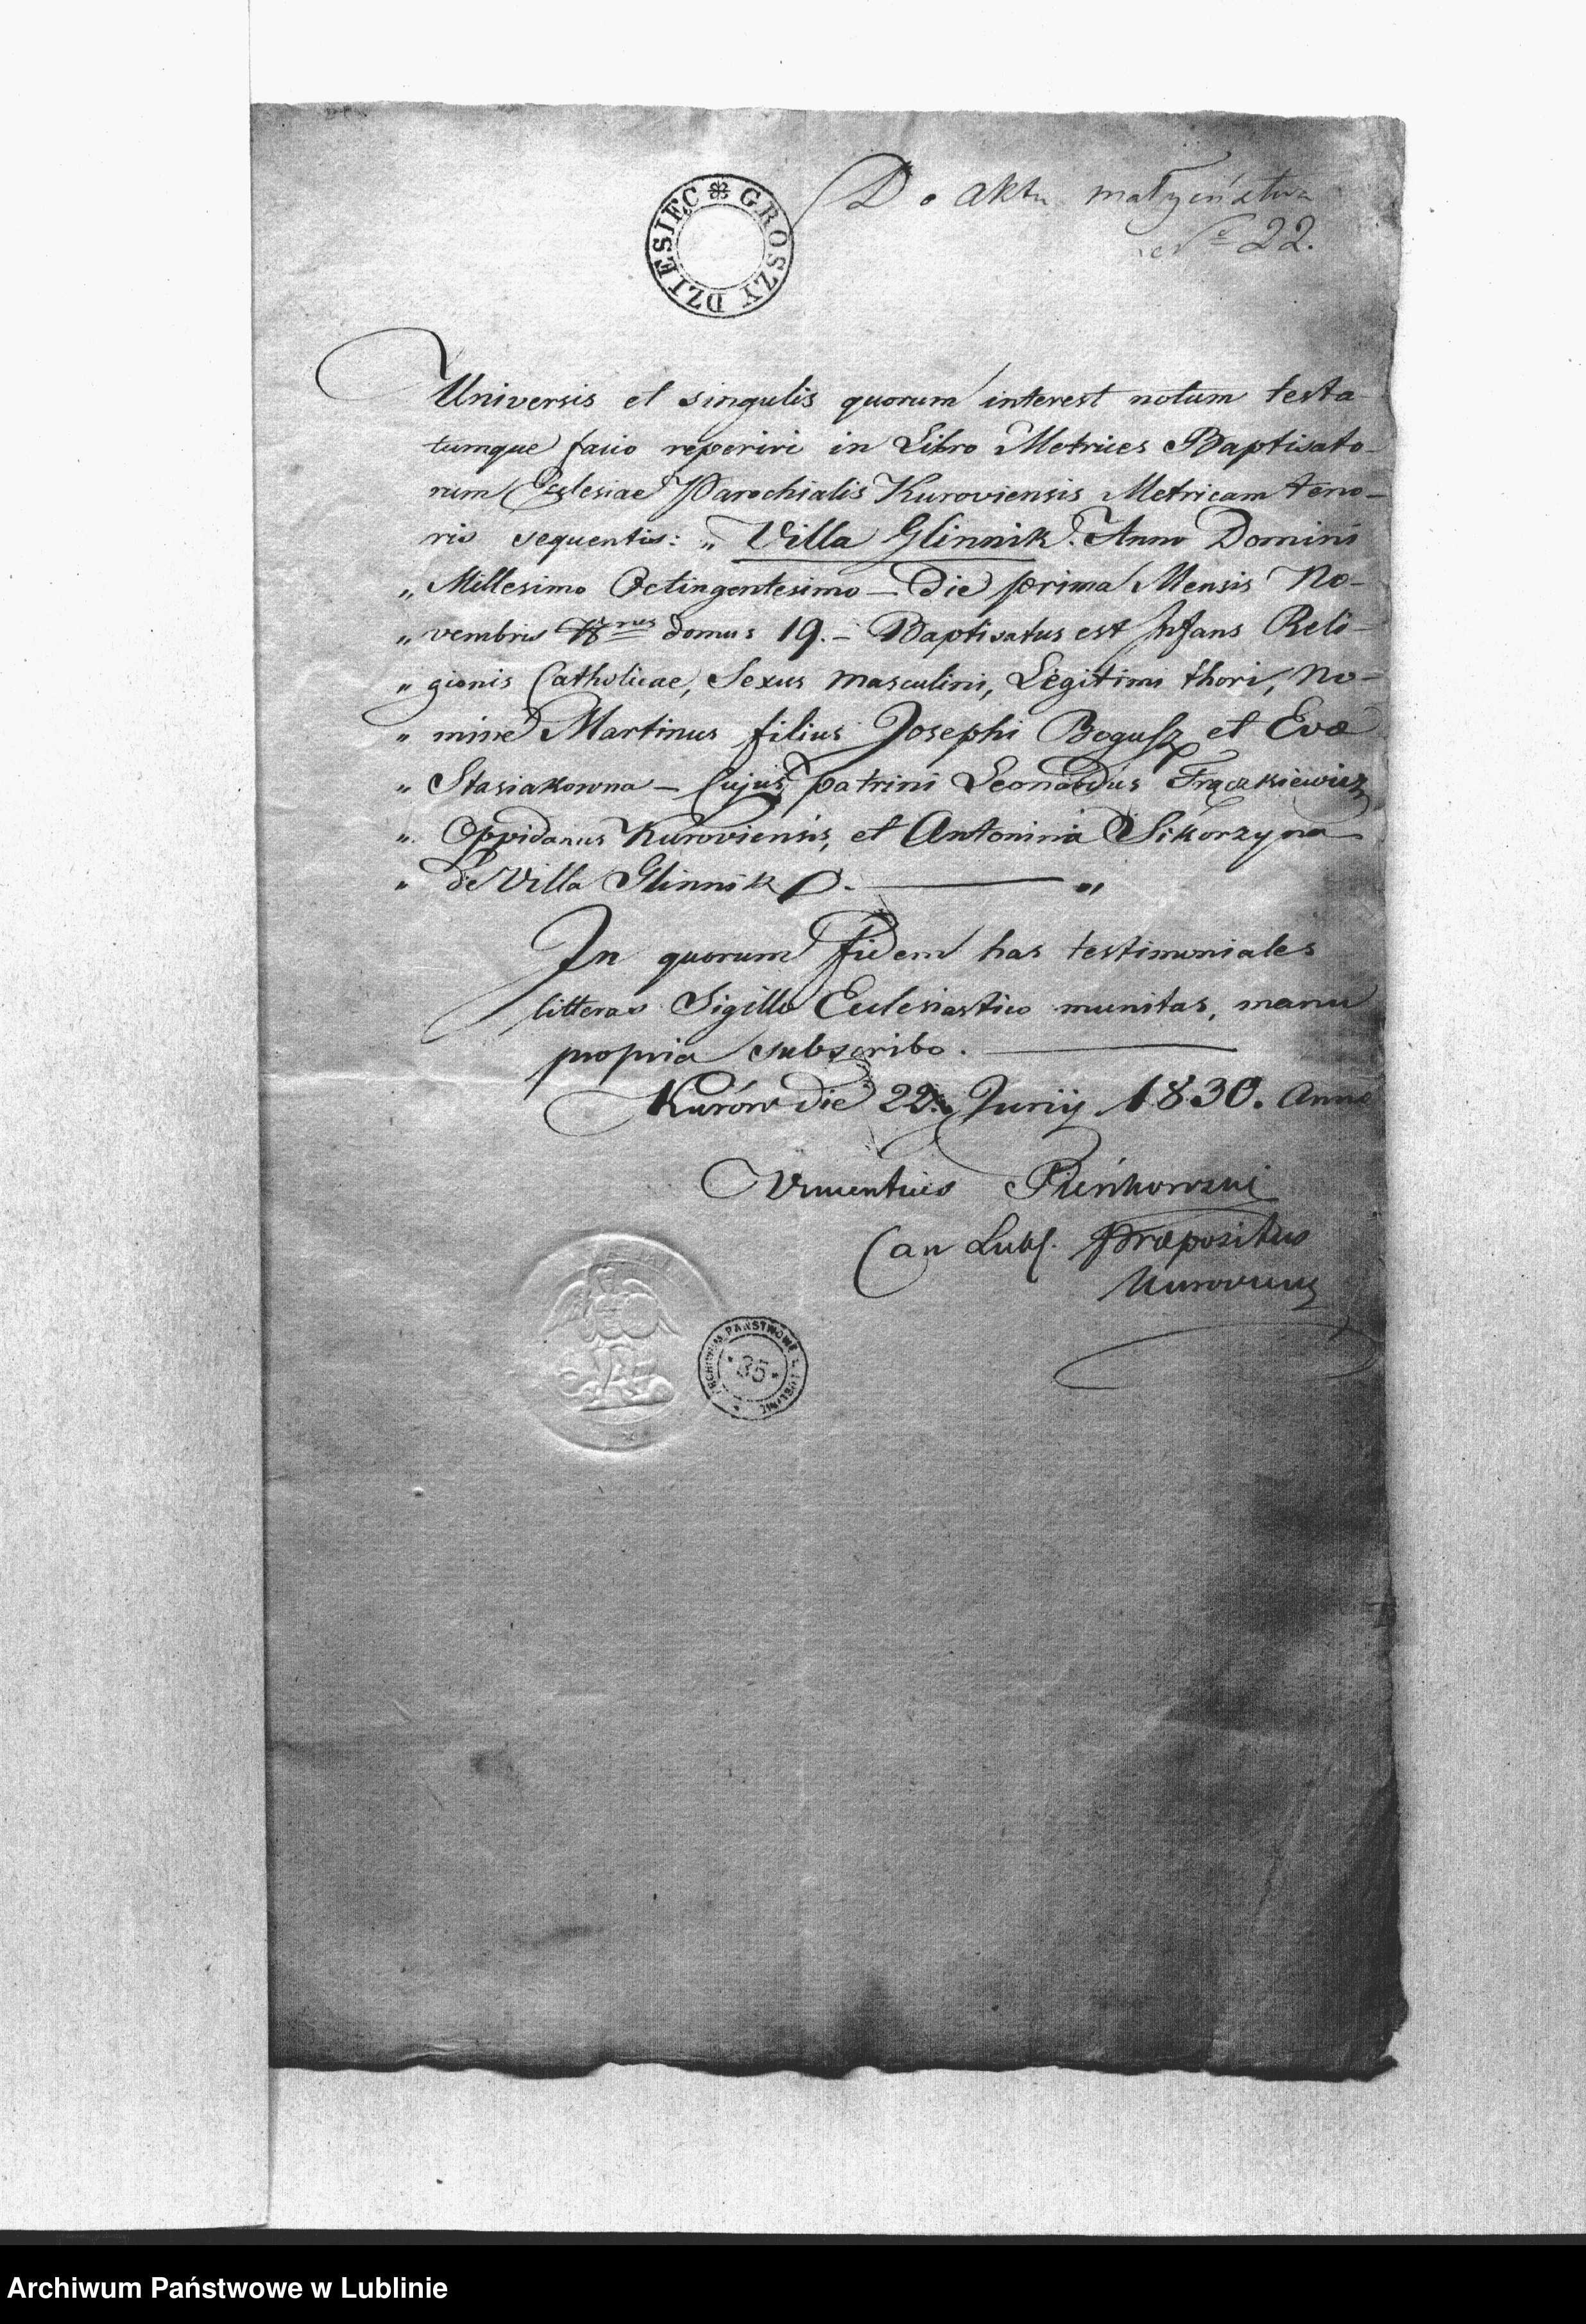 GROSZY DZIESIEC
Do aktu małżeństwa
Nr 22.
Universis et singulis quorum interest notum testa-
tumque facio reperiri in Libro Metrices Baptisato-
rum Ecclesiae Parochialis Kuroviensis Metricam teno-
ris sequentis: „ Villa Glinnik. Anno Domini
„ Millesimo Octingentesimo – die prima Mensis No-
„ vembris Nrus domus 19. – Baptisatus est Infans Reli-
„ gionis Catholicae, Sexus masculini, Legitimi thori, No-
„ mine Martinus filius Josephi Bogusz et Evæ
„ Stasiakowna – Cujus patrini Leonardus Frączkiewicz
„ Oppidanus Kuroviensis, et Antonina Sikorzyna
„ de Villa Glinnik. — „
In quorum fidem has testimoniales
litteras Sigillo Ecclesiastico munitas, manu
propria subscribo. —
Kurów die 22. Junij 1830. Anno
Vincentius Pieńkowski
Can Lubl. Præpositus
Kuroviens
ARCHIWUM PAŃSTWOWE w LUBLINIE
35
Archiwum Państwowe w Lublinie